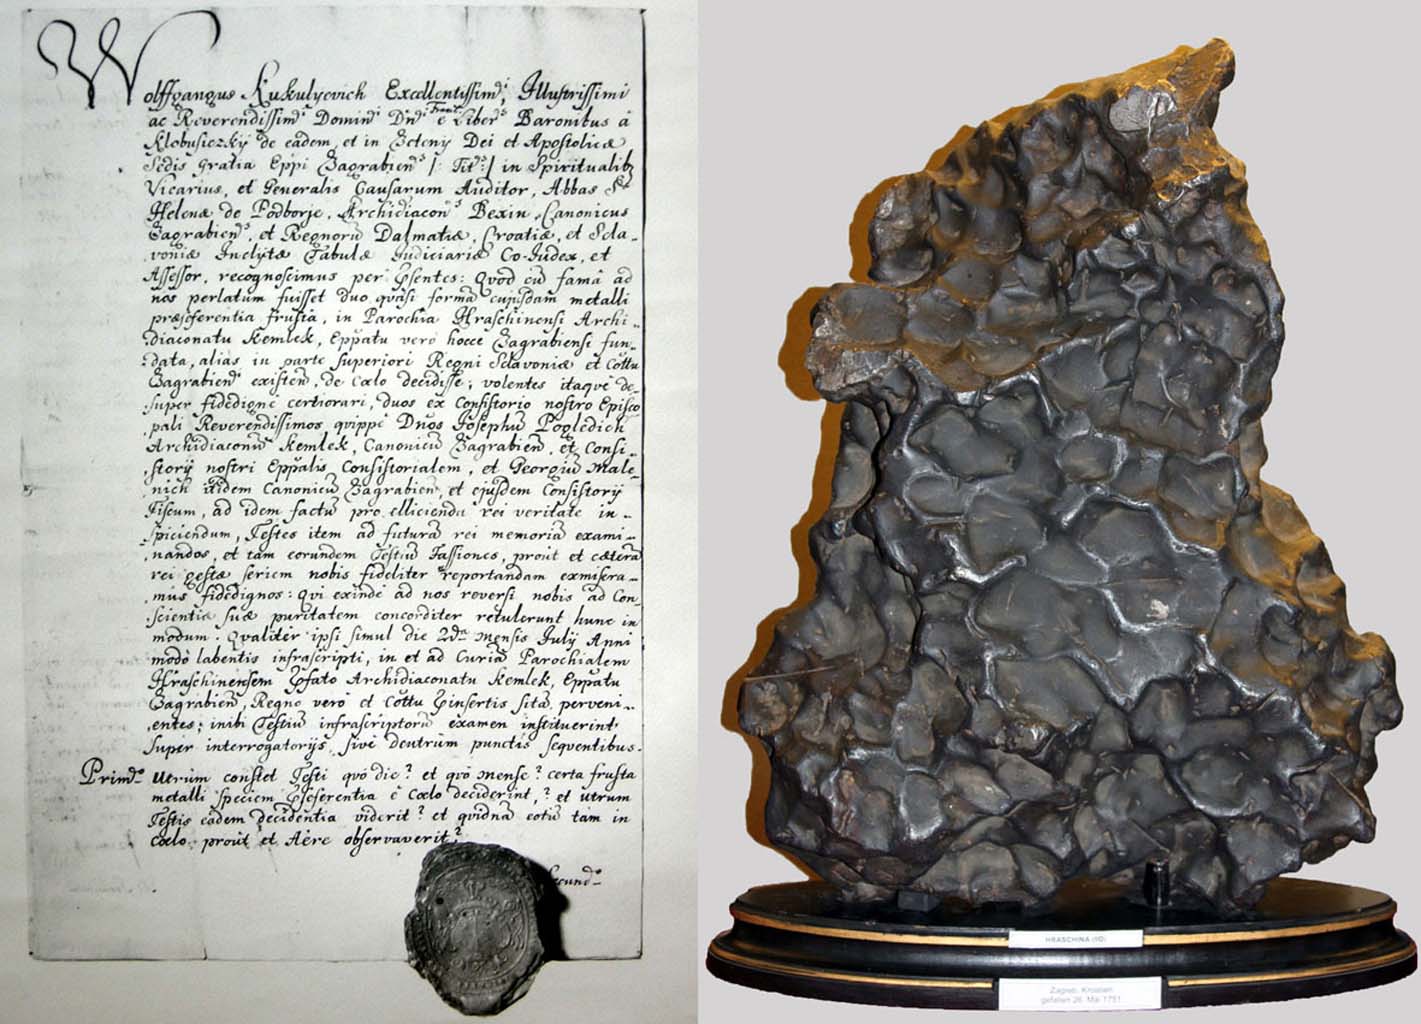 Wolffgangus Kukulyevich Excellentissimi, Illustrissimi
ac Reverendissimi Domini Dni Franc. e Liber. Baronibus a
Klobusiczky de eadem, et in Zeteny Dei et Apostolicæ
Sedis gratia Eppi Zagrabien. /: Tit: / in Spiritualib9
Vicarius, et Generalis Causarum Auditor, Abbas S.
Helenæ de Podborje, Archidiacon9 Bexin, Canonicus
Zagrabien., et Regnorū Dalmatiæ, Croatiæ, et Scla-
voniæ Inclytæ Tabulæ Judiciariæ Co-Judex, et
Assessor, recognoscimus per Psentes: Quod cū famâ ad
nos perlatum fuisset duo quasi formā cujusdam metalli
præseferentia frusta, in Parochia Hraschinensi Archi-
diaconatu Kemlek, Eppatu verò hocce Zagrabiensi fun-
data, alias in parte superiori Regni Sclavoniæ et Cottu
Zagrabien. existen., de Cœlo decidisse; volentes itaquè de-
super fidedignè certiorari, duos ex Consistorio nostro Episco
pali Reverendissimos quippè Dnos Josephū Pogledich
Archidiaconū Kemlek, Canonicū Zagrabien, et Consi-
storij nostri Eppalis Consistorialem, et Georgiū Male-
nich itidem Canonicū Zagrabien, et ejusdem Consistorij
Fiscum, ad idem factū pro elliciendâ rei veritate in-
spiciendum, Testes item ad futurā rei memoriā exami-
nandos, et tam eorundem Testiū Fassiones, prout et cæterā
rei gestæ seriem nobis fideliter reportandam exmisera-
mus fidedignos: Qui exinde ad nos reversi nobis ad Con-
scientiæ suæ puritatem concorditer retulerunt hunc in
modum: Qvalitèr ipsi simul die 2da mensis July Anni
modò labentis infrascripti, in et ad Curiā Parochialem
Hraschinensem Pfato Archidiaconatu Kemlek, Eppatu
Zagrabien, Regno verò et Cottu Pinsertis sitā perveni-
entes; inibi Testiū infrascriptorū examen instituerint
super interrogatorijs, sivè deutrum punctis seqventibus.
Primò Utrùm constet Testi quò die? et quò mense? certa frusta
metalli speciem Pseferentia è Cœlo deciderint? et utrum
Testis eadem decidentia viderit? et qvidnā eotū tam in
Cœlo, prout et Aëre observaverit?
Secund.
HRASCHINA (IID)
Zagreb, Kroatien
gefallen 26. Mai 1751